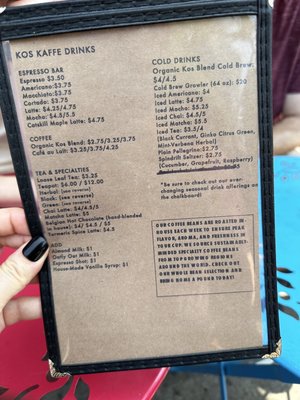 KOS KAFFE DRINKS
ESPRESSO BAR
Espresso $3.50
Americano:$3.75
Macchiato:$3.75
Cortado: $3.75
Latte: $4.25/4.75
Mocha: $4.5/5.5
Catskill Maple Latte: $4.75
COFFEE
Organic Kos Blend: $2.75/3.25/3.75
Café au Lait: $3.25/3.75/4.25
TEA & SPECIALTIES
Loose Leaf Tea: $3.25
Teapot: $6.00 / $12.00
Herbal: (see reverse)
Black: (see reverse)
Green: (see reverse)
Chai Latte: $4/4.5/5
Matcha Latte: $5
Belgian Hot Chocolate (hand-blended
in house): $4/ $4.5/ $5
Turmeric Spice Latte: $4.5
ADD
Almond Milk: $1
Oatly Oat Milk: $1
Espresso Shot: $1
House-Made Vanilla Syrup: $1
COLD DRINKS
Organic Kos Blend Cold Brew:
$4/4.5
Cold Brew Growler (64 oz): $20
Iced Americano: $4
Iced Latte: $4.75
Iced Mocha: $5.25
Iced Chai: $4.5/5
Iced Matcha: $5.5
Iced Tea: $3.5/4
(Black Currant, Ginko Citrus Green,
Mint-Verbena Herbal)
Plain Pellegrino:$2.75
Spindrift Seltzer: $2.75
(Cucumber, Grapefruit, Raspberry)
*Be sure to check out our ever-
changing seasonal drink offerings on
the chalkboard!
OUR COFFEE BEANS ARE ROASTED IN-
HOUSE EACH WEEK TO ENSURE PEAK
FLAVOR, AROMA, AND FRESHNESS IN
YOUR CUP. WE SOURCE SUSTAINABLE-
MINDED SPECIALTY COFFEE BEANS
FROM TOP GROWING REGIONS
AROUND THE WORLD. CHECK OUT
OUR WHOLE BEAN SELECTION AND
BRING HOME A POUND TODAY!